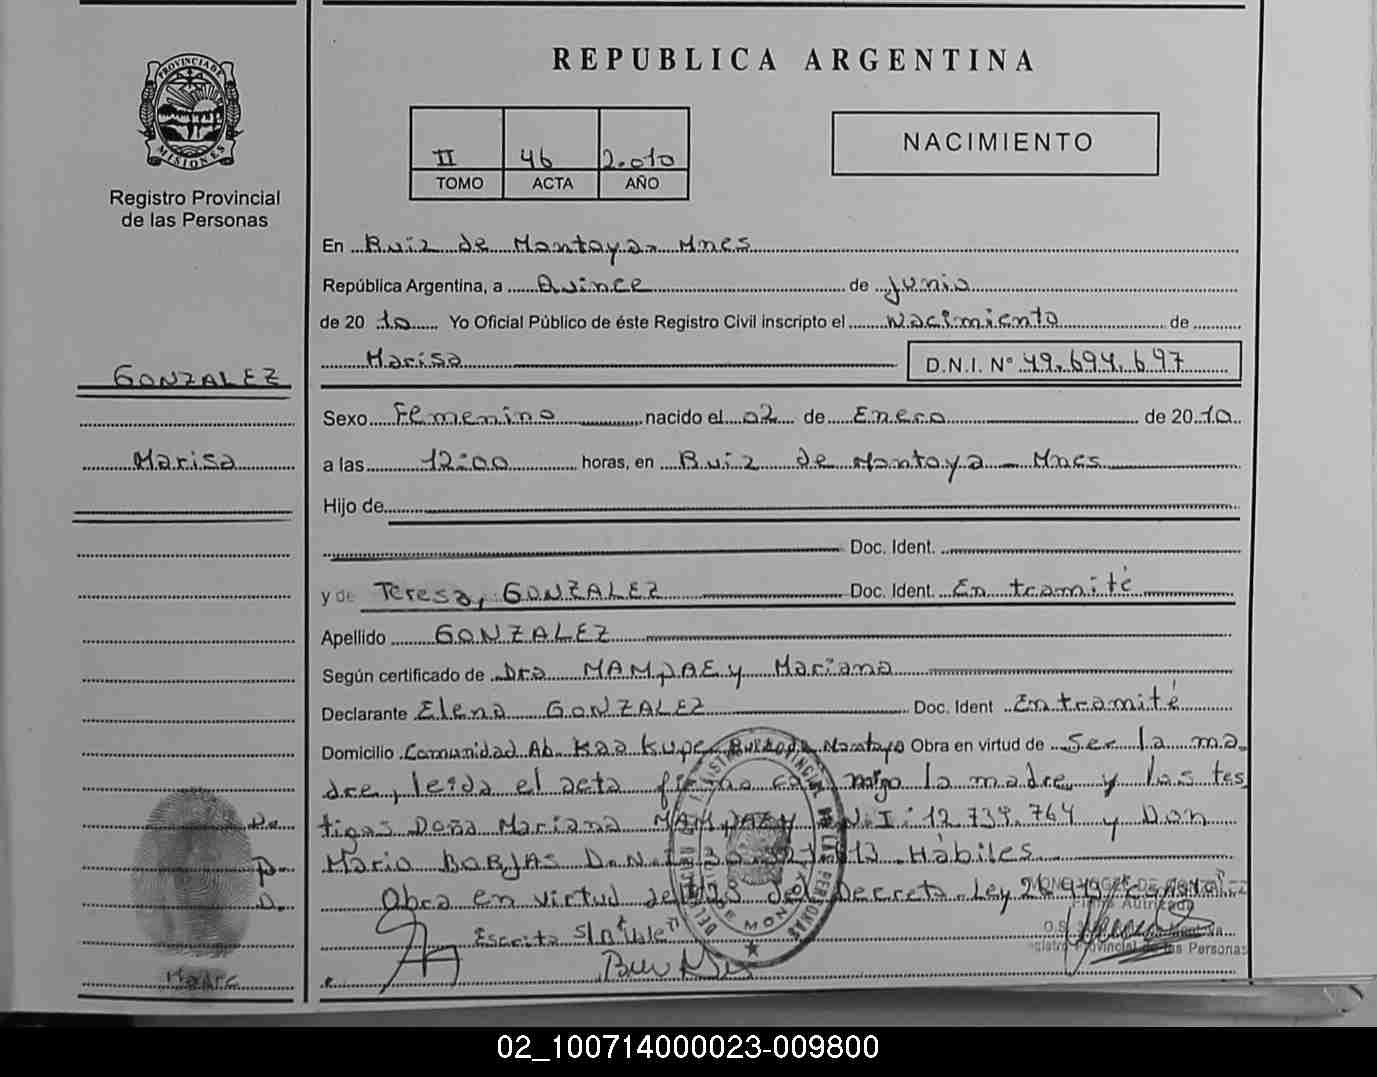 REPUBLICA ARGENTINA
PROVINCIA DE MISIONES
Registro Provincial
de las Personas
II 46 2.010
TOMO ACTA AÑO
NACIMIENTO
En Ruiz de Montoya - Mnes
República Argentina, a Quince de junio
de 20 10 Yo Oficial Público de éste Registro Civil inscripto el Nacimiento de
Marisa D.N.I. Nº 49.694.697
GONZALEZ
Marisa
Sexo Femenino nacido el 02 de Enero de 20 10
a las 12:00 horas, en Ruiz de Montoya - Mnes
Hijo de
Doc. Ident.
y de Teresa, GONZALEZ Doc. Ident. En tramité
Apellido GONZALEZ
Según certificado de Dra MAMPAEY Mariana
Declarante Elena GONZALEZ Doc. Ident En tramité
Domicilio Comunidad Ab. Kaa Kupe Montoya Obra en virtud de Ser la ma-
dre, leida el acta firma conmigo la madre y los tes
tigos Doña Mariana MAMPAEY D.N.I: 12.739.764 y Don
Mario BORJAS D.N.I. Hábiles
Obra en virtud del del Decreto Ley
Escrito s/n "Vale"
De
p.
D.
Madre
REGISTRO PROVINCIAL DE LAS PERSONAS
Firma Autorizada
Registro Provincial de las Personas
02_100714000023-009800